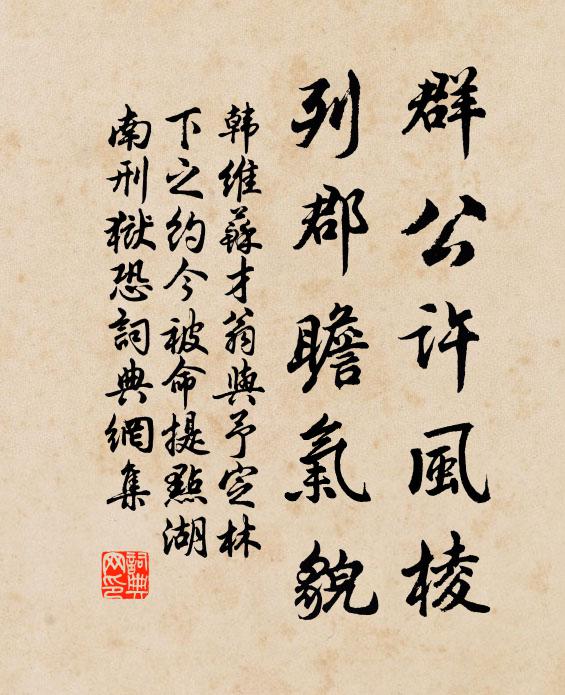 群公許風棱
列郡瞻氣貌
韓維蘇才翁與予定林
下之約今被命提點湖
南刑獄恐詞典網集
詞典網印